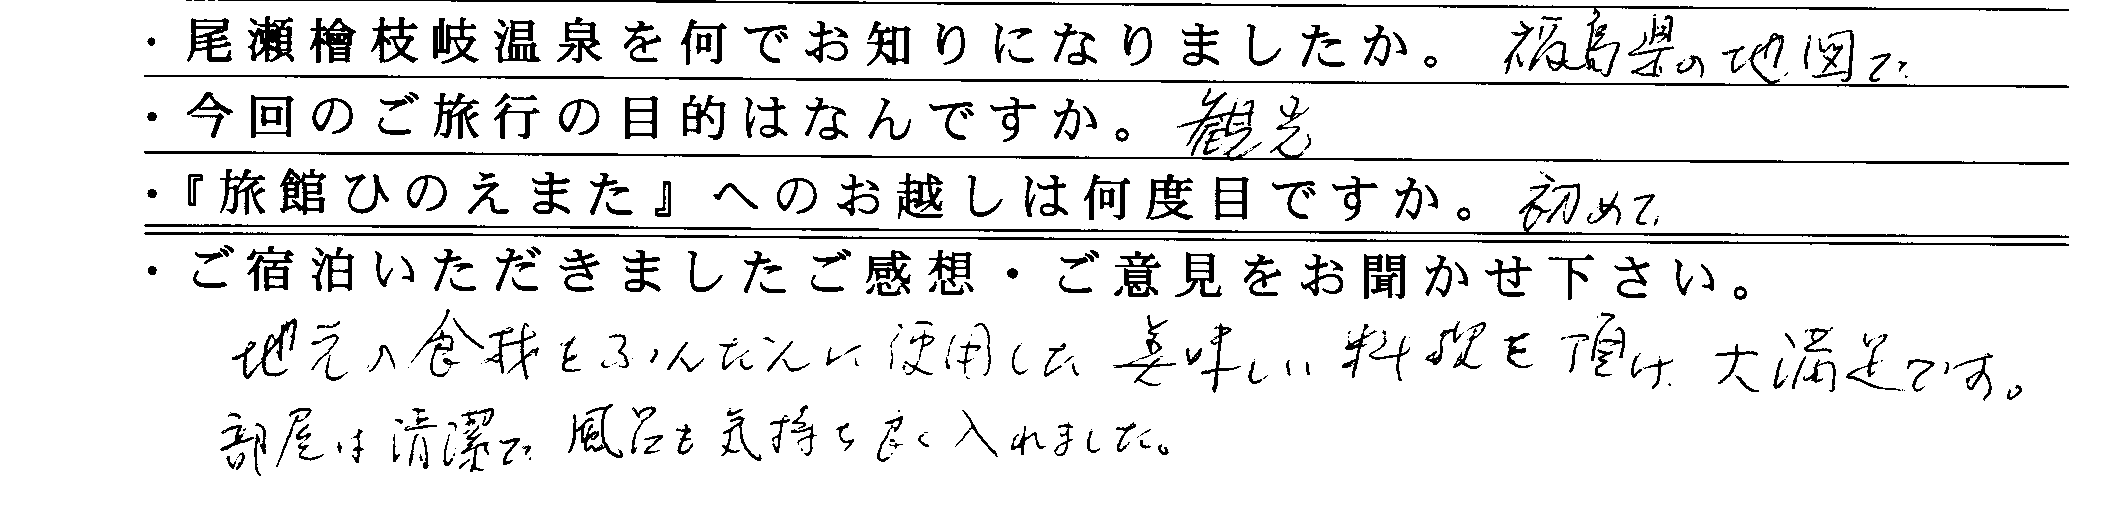 ・尾瀬檜枝岐温泉を何でお知りになりましたか。 福島県の地図で
・今回のご旅行の目的はなんですか。 観光
・『旅館ひのえまた』へのお越しは何度目ですか。 初めて
・ご宿泊いただきましたご感想・ご意見をお聞かせ下さい。
地元の食材をふんだんに使用した美味しい料理を頂け大満足です。
部屋は清潔で風呂も気持ち良く入れました。